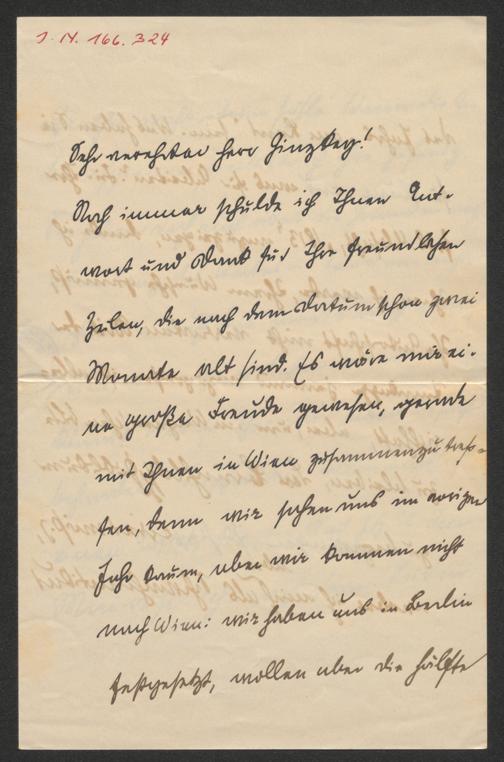 J.N. 166.324
Sehr verehrter Herr Ginzkey!
Noch immer schulde ich Ihnen Ant-
wort und Dank für Ihre freundlichen
Zeilen, die nach dem Datum schon zwei
Monate alt sind. Es wäre mir ei-
ne große Freude gewesen, gerade
mit Ihnen in Wien zusammenzutref-
fen, denn wir sahen uns im vorigen
Jahr kaum, aber wir kommen nicht
nach Wien: wir haben uns in Berlin
festgesetzt, wollen aber die Hälfte